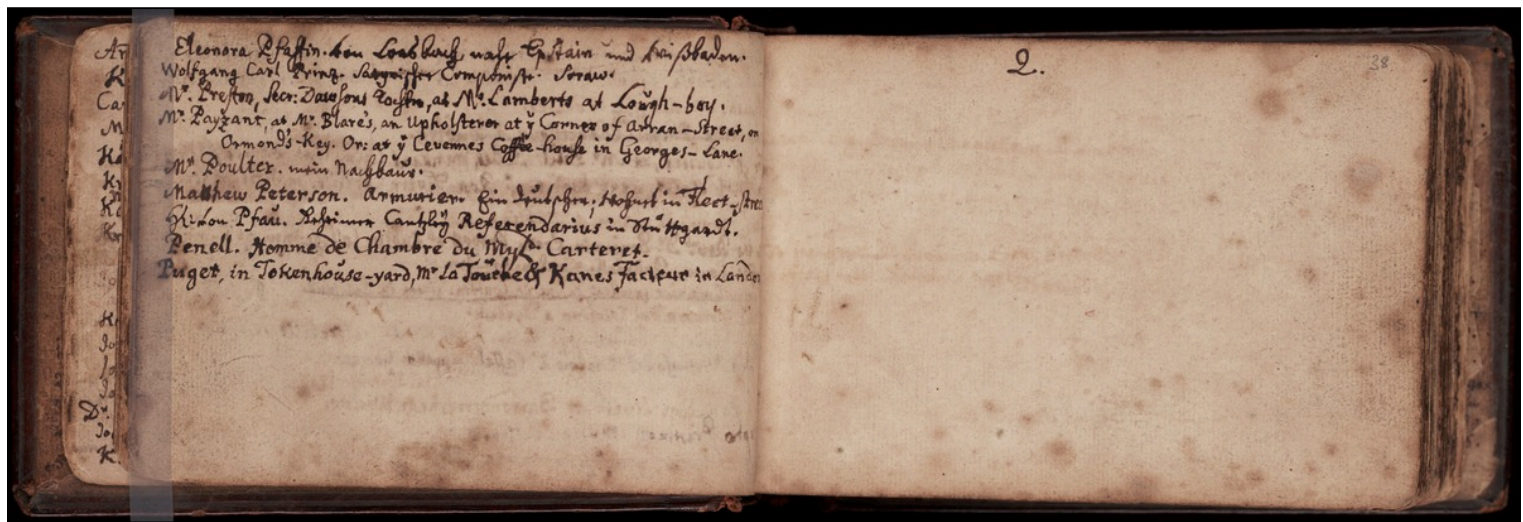 Eleonora Pfaffin. von Lorsbach, nahe Epstain und Wißbaden.
Wolfgang Carl Prinz. Satyrischer Componiste. Soraw.
Mr. Preston, Secr: Dawsons at Mr. Lamberts at Lough-boy.
Mr. Payzant, at Mr. Blare's, an Upholsterer at ÿ Corner of Arran-Street, on
Ormond's-Key. Or: at ÿ Cevennes Coffée-house in Georges-Lane.
Mr. Poulter. mein Nachbaur.
Matthew Peterson. Armurier. Ein deutscher, wohnet in Fleet-stree
H: von Pfau. Geheimer Cantzley Referendarius in Stuttgardt.
Penell. Homme de Chambre du Myld. Carteret.
Puget, in Tokenhouse-yard, Mr La Touche & Kanes Facteur in Londo
2.
38